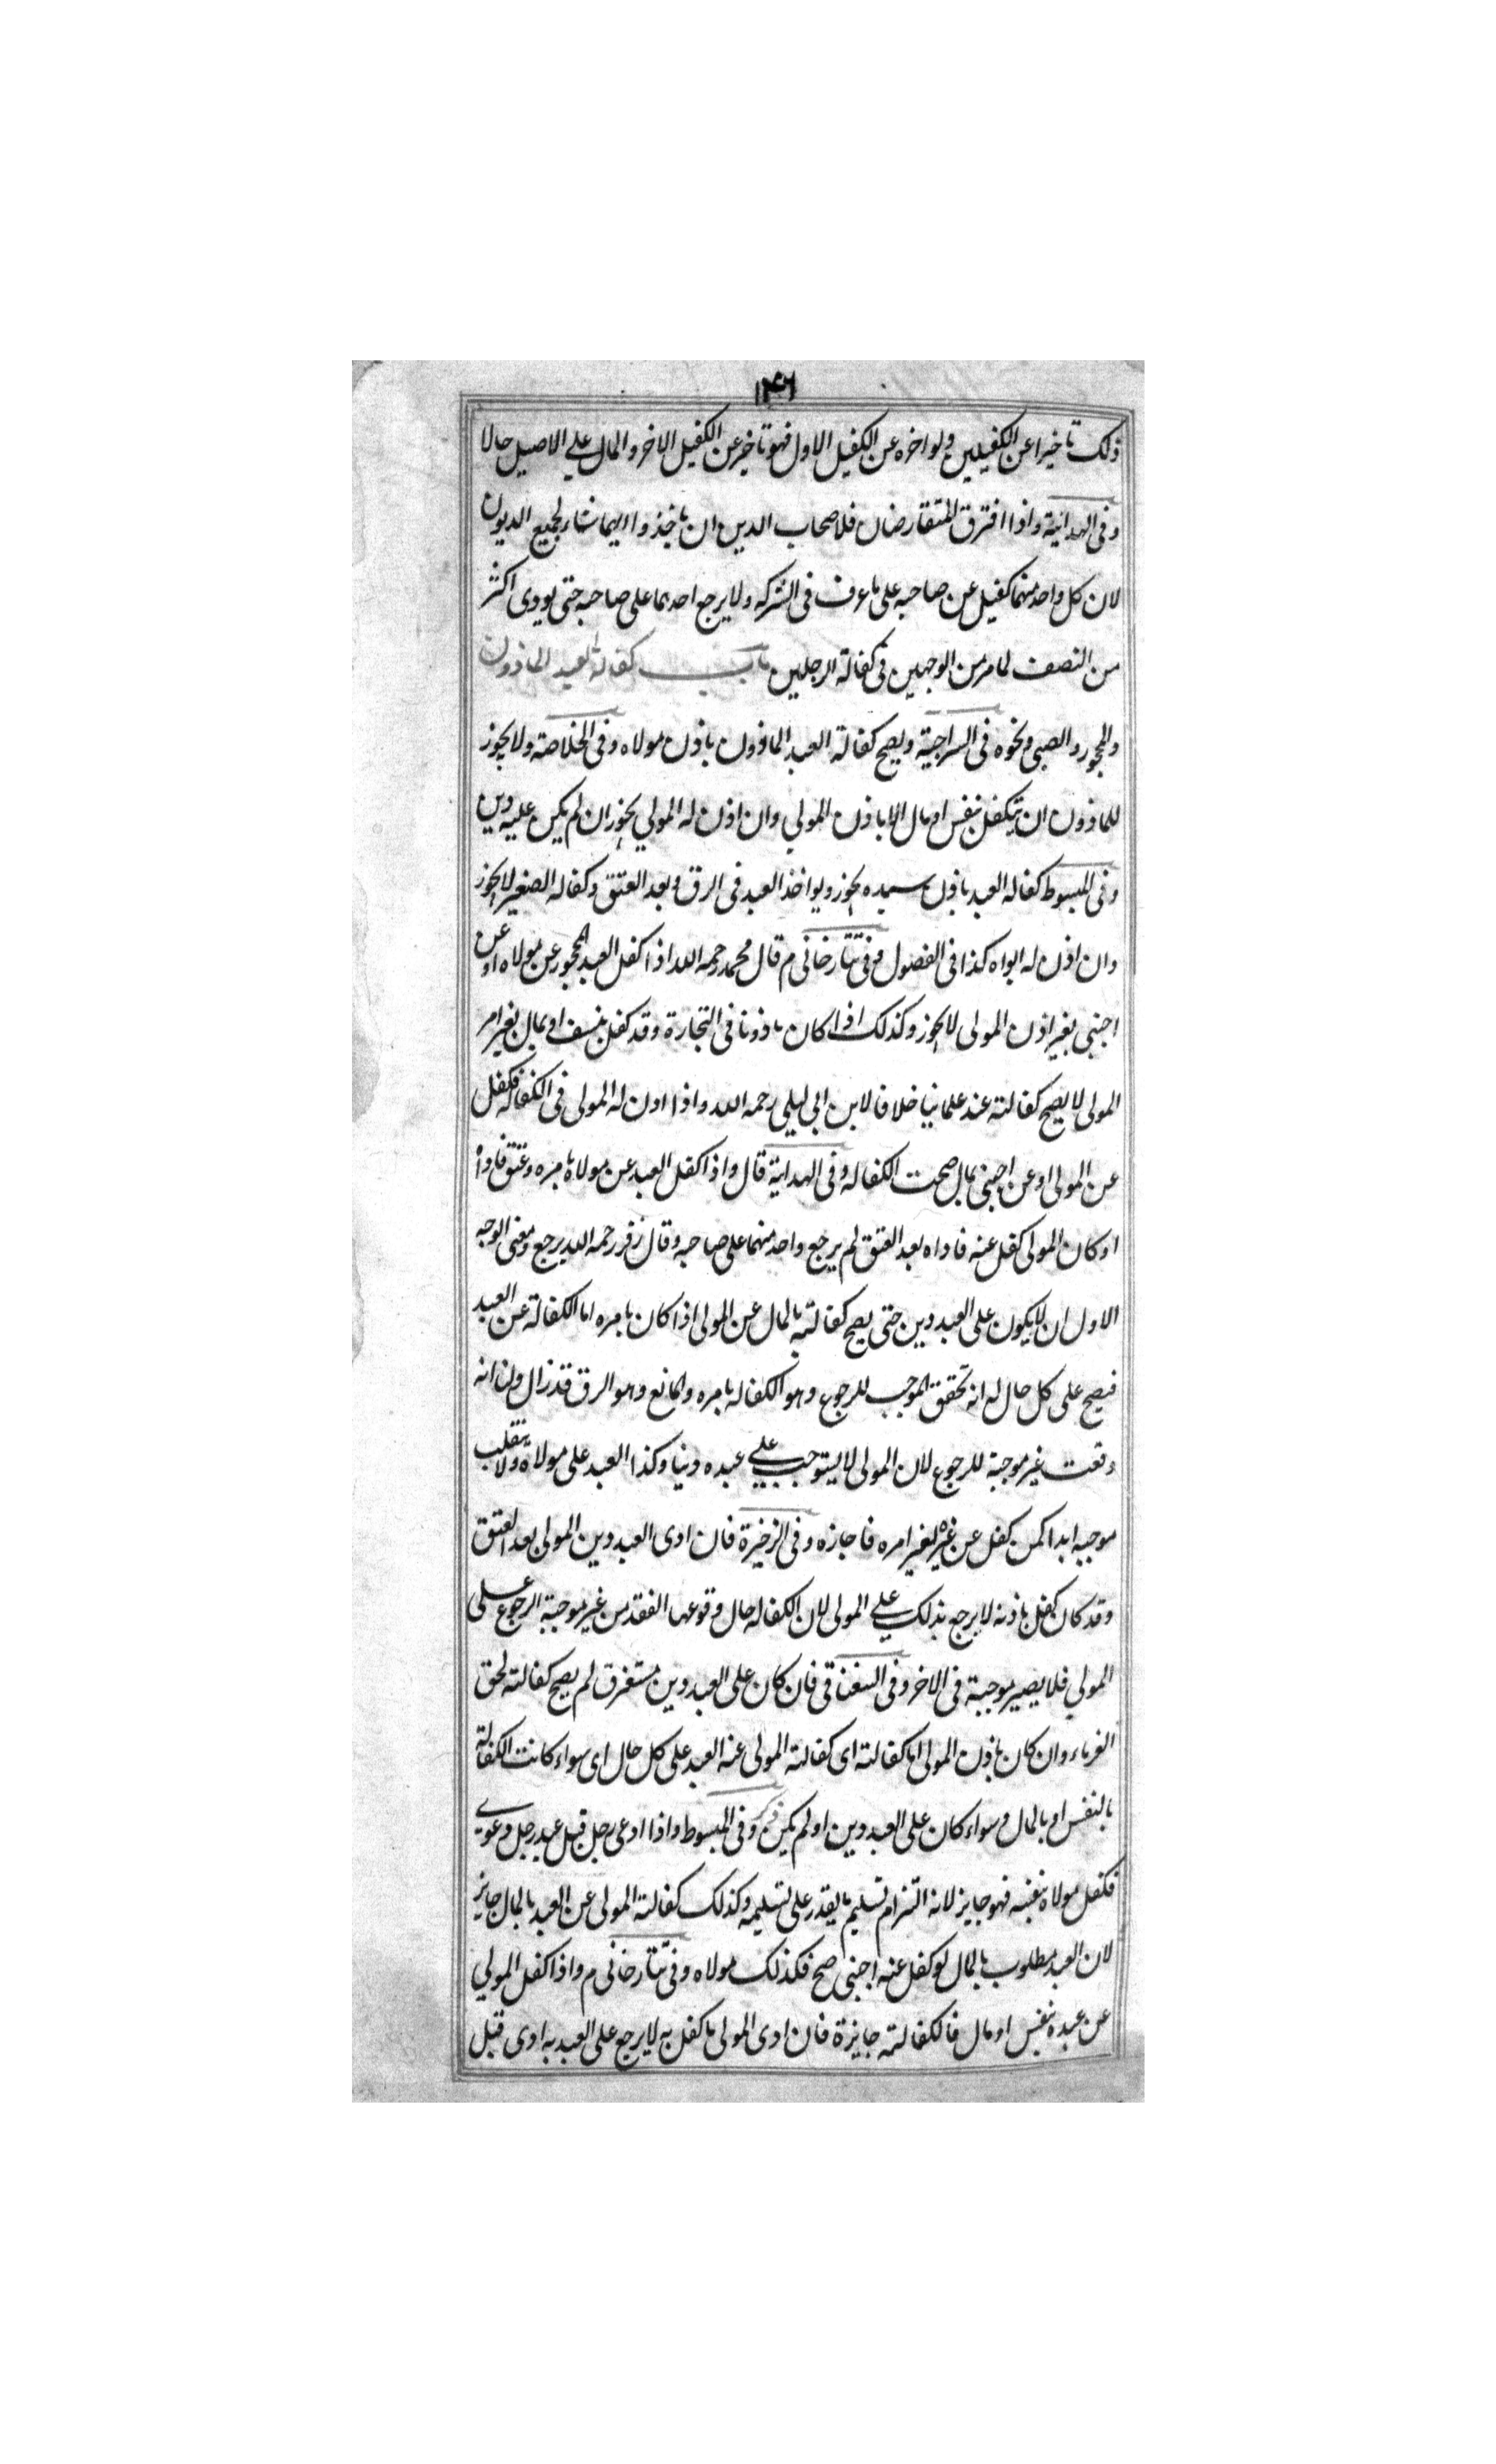 ١٣٤٦
ذلك تاخيرا عن الكفيلين ولو اخره عن الكفيل الاول فهو تاخير عن الكفيل الاخر والمال على الاصيل حالا
وفى الهداية واذا افترق المتفارضان فلاصحاب الدين ان ياخذوا ايهما شاء لجميع الديون
لان كل واحد منهما كفيل عن صاحبه على ما عرف فى الشركه ولا يرجع احدهما على صاحبه حتى يودى اكثر
من النصف لما مر من الوجهين فى كفالة الرجلين باب كفالة العبد الماذون
والمحجور والصبى ونحوه فى السراجية ويصح كفالة العبد الماذون باذن مولاه وفى الخلاصة ولا يجوز
للماذون ان يتكفل بنفس او مال الا باذن المولى وان اذن له المولى يجوز ان لم يكن عليه دين
وفى المبسوط كفاله العبد باذن سيده يجوز ويواخذ العبد فى الرق وبعد العتق وكفاله الصغير لا يجوز
وان اذن له ابواه كذا فى الفصول وفى تتارخانى م قال محمد رحمه الله اذا كفل العبد المحجور عن مولاه او عن
اجنبى بغير اذن المولى لا يجوز وكذلك اذا كان ماذونا فى التجارة وقد كفل بنسف او بمال بغير امر
المولى لا يصح كفالته عند علمائنا خلافا لابن ابى ليلى رحمه الله واذا اذن له المولى فى الكفاله فكفل
عن المولى او عن اجنبى بمال صحت الكفاله وفى الهداية قال واذا كفل العبد عن مولاه بامره وعتق فاداه
او كان المولى كفل عنه فاداه بعد العتق لم يرجع واحد منهما على صاحبه وقال زفر رحمه الله يرجع ومعنى الوجه
الاول ان لا يكون على العبد دين حتى يصح كفالته بالمال عن المولى اذا كان بامره اما الكفالة عن العبد
فيصح على كل حال له انه تحقق الموجب للرجوع وهو الكفاله بامره والمانع وهو الرق قد زال ولنا انه
وقعت غير موجبة للرجوع لان المولى لا يستوجب على عبده دينا وكذا العبد على مولاه ولا ينقلب
موجبه ابدا كمن كفل عن غيره لغير امره فاجازه وفى الزخيرة فان ادى العبد دين المولى بعد العتق
وقد كان كفل باذنه لا يرجع بذلك على المولى لان الكفاله حال وقوعها انعقد من غير موجبة الرجوع على
المولى فلا يصير موجبة فى الاخر وفى السغناقى فان كان على العبد دين مستغرق لم يصح كفالته لحق
الغرماء وان كان باذن المولى اما كفالته اى كفالته المولى عنه العبد على كل حال اى سواء كانت الكفالة
بالنفس او بالمال وسواء كان على العبد دين او لم يكن وفى المبسوط واذا ادعى رجل قبل عبد رجل دعوى
فكفل مولاه بنفسه فهو جايز لانه التزام تسليم ما يقدر على تسليمه وكذلك كفالته المولى عن العبد بالمال جايز
لان العبد مطلوب بالمال لو كفل عنه اجنبى صح فكذلك مولاه وفى تتارخانى م واذا كفل المولى
عن عبده بنفس او مال فالكفالته جايزة فان ادى المولى ما كفل به لا يرجع على العبد به ادى قبل